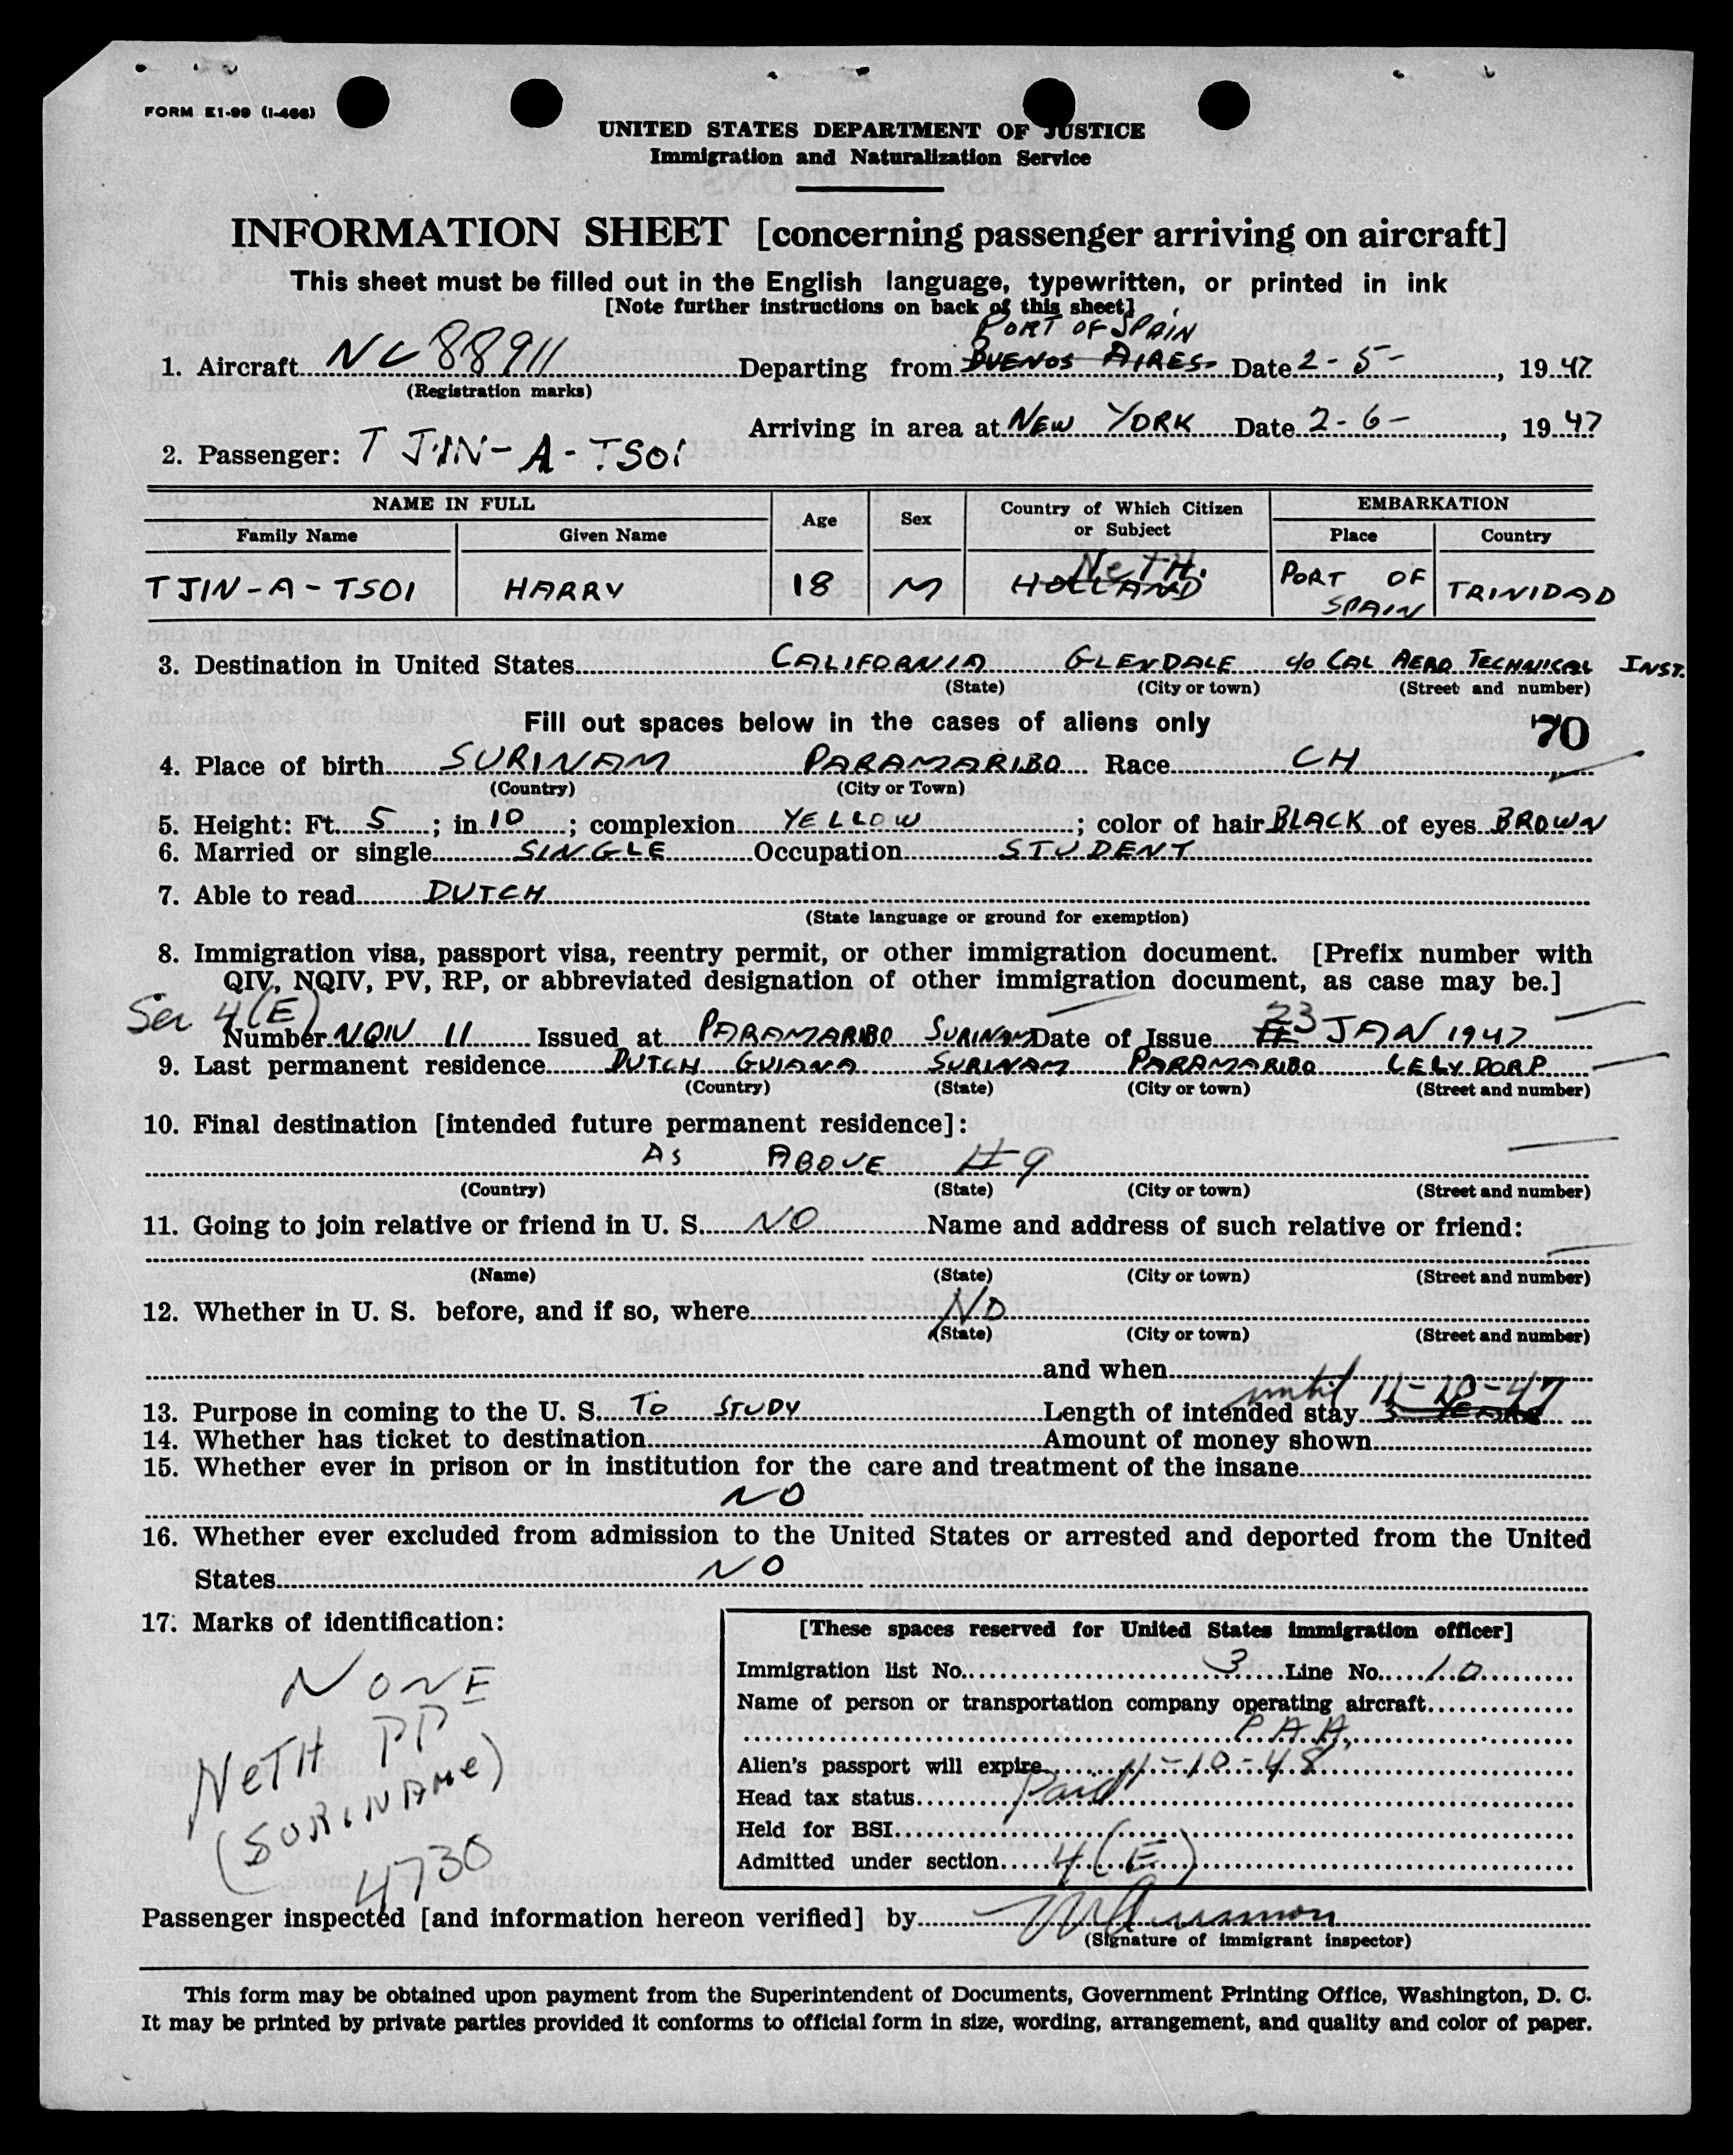 FORM E1-99 (I-466)
UNITED STATES DEPARTMENT OF JUSTICE
Immigration and Naturalization Service
INFORMATION SHEET [concerning passenger arriving on aircraft]
This sheet must be filled out in the English language, typewritten, or printed in ink
[Note further instructions on back of this sheet]
PORT OF SPAIN
1. Aircraft NC 88911 Departing from BUENOS AIRES Date 2-5-, 19 47
(Registration marks)
Arriving in area at NEW YORK Date 2-6-, 19 47
2. Passenger: TJIN-A-TSOI
NAME IN FULL Age Sex Country of Which Citizen or Subject EMBARKATION
Family Name Given Name Place Country
NETH.
TJIN-A-TSOI HARRY 18 M HOLLAND PORT OF SPAIN TRINIDAD
3. Destination in United States CALIFORNIA GLENDALE c/o CAL AERO TECHNICAL INST.
(State) (City or town) (Street and number)
Fill out spaces below in the cases of aliens only 70
4. Place of birth SURINAM PARAMARIBO Race CH
(Country) (City or Town)
5. Height: Ft. 5; in. 10; complexion YELLOW; color of hair BLACK of eyes BROWN
6. Married or single SINGLE Occupation STUDENT
7. Able to read DUTCH
(State language or ground for exemption)
8. Immigration visa, passport visa, reentry permit, or other immigration document. [Prefix number with
QIV, NQIV, PV, RP, or abbreviated designation of other immigration document, as case may be.]
Sec 4(E)
Number NQIV 11 Issued at PARAMARIBO SURINAM Date of Issue 23 JAN 1947
9. Last permanent residence DUTCH GUIANA SURINAM PARAMARIBO LELYDORP
(Country) (State) (City or town) (Street and number)
10. Final destination [intended future permanent residence]:
AS ABOVE #9
(Country) (State) (City or town) (Street and number)
11. Going to join relative or friend in U. S. NO Name and address of such relative or friend:
(Name) (State) (City or town) (Street and number)
12. Whether in U. S. before, and if so, where NO
(State) (City or town) (Street and number)
and when
until 11-10-47
13. Purpose in coming to the U. S. TO STUDY Length of intended stay 3 YEARS
14. Whether has ticket to destination Amount of money shown
15. Whether ever in prison or in institution for the care and treatment of the insane
NO
16. Whether ever excluded from admission to the United States or arrested and deported from the United
States NO
17. Marks of identification:
NONE
NETH PP
(SURINAME)
4730
[These spaces reserved for United States immigration officer]
Immigration list No. 3 Line No. 10
Name of person or transportation company operating aircraft
P.A.A.
Alien's passport will expire 11-10-48
Head tax status Paid
Held for BSI
Admitted under section 4(E)
Passenger inspected [and information hereon verified] by
(Signature of immigrant inspector)
This form may be obtained upon payment from the Superintendent of Documents, Government Printing Office, Washington, D. C.
It may be printed by private parties provided it conforms to official form in size, wording, arrangement, and quality and color of paper.